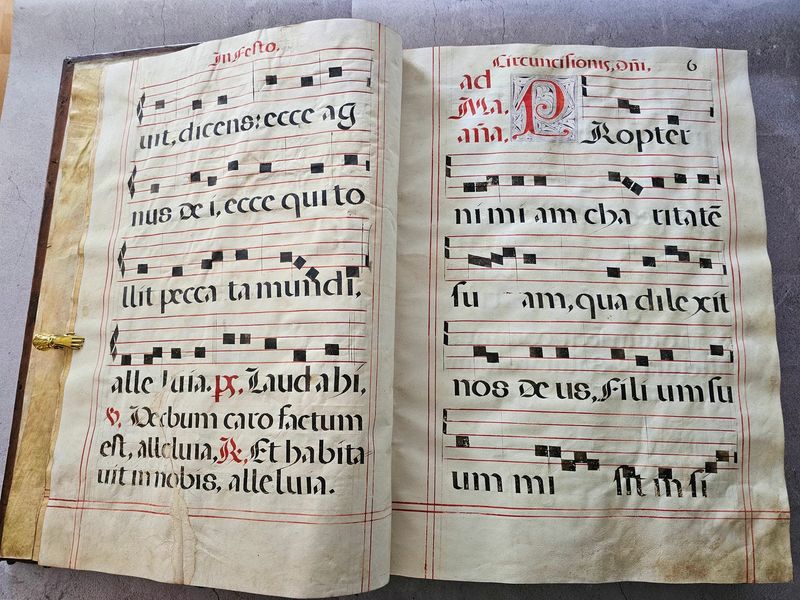 In Festo.
uit, dicens: ecce ag
nus de i, ecce qui to
llit pecca ta mundi,
alle luia. ps. Laud abi,
V. Verbum caro factum
est, alleluia, R. Et habita
uit in nobis, alleluia.
Circuncisionis, Dñi, 6
ad
Ma
aña. PRopter
ni mi am cha ritatē
su am, qua dile xit
nos De us, Fili um su
um mi sit in si